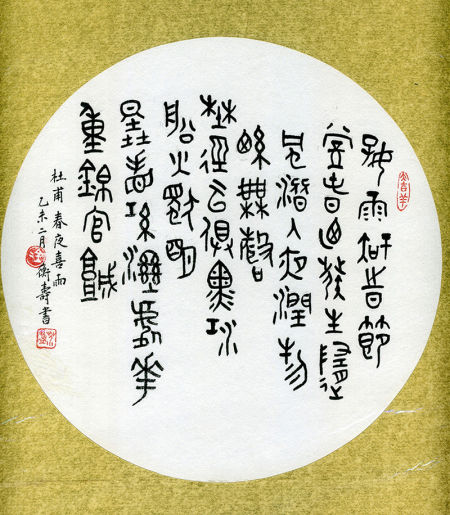 好雨知旹節
當春乃發生隨
風潛入夜潤物
細無聲
埜徑云俱黑江
船火獨明
曉看紅濕處花
重錦官城
杜甫春夜喜雨
乙未二月衡壽書
大吉羊